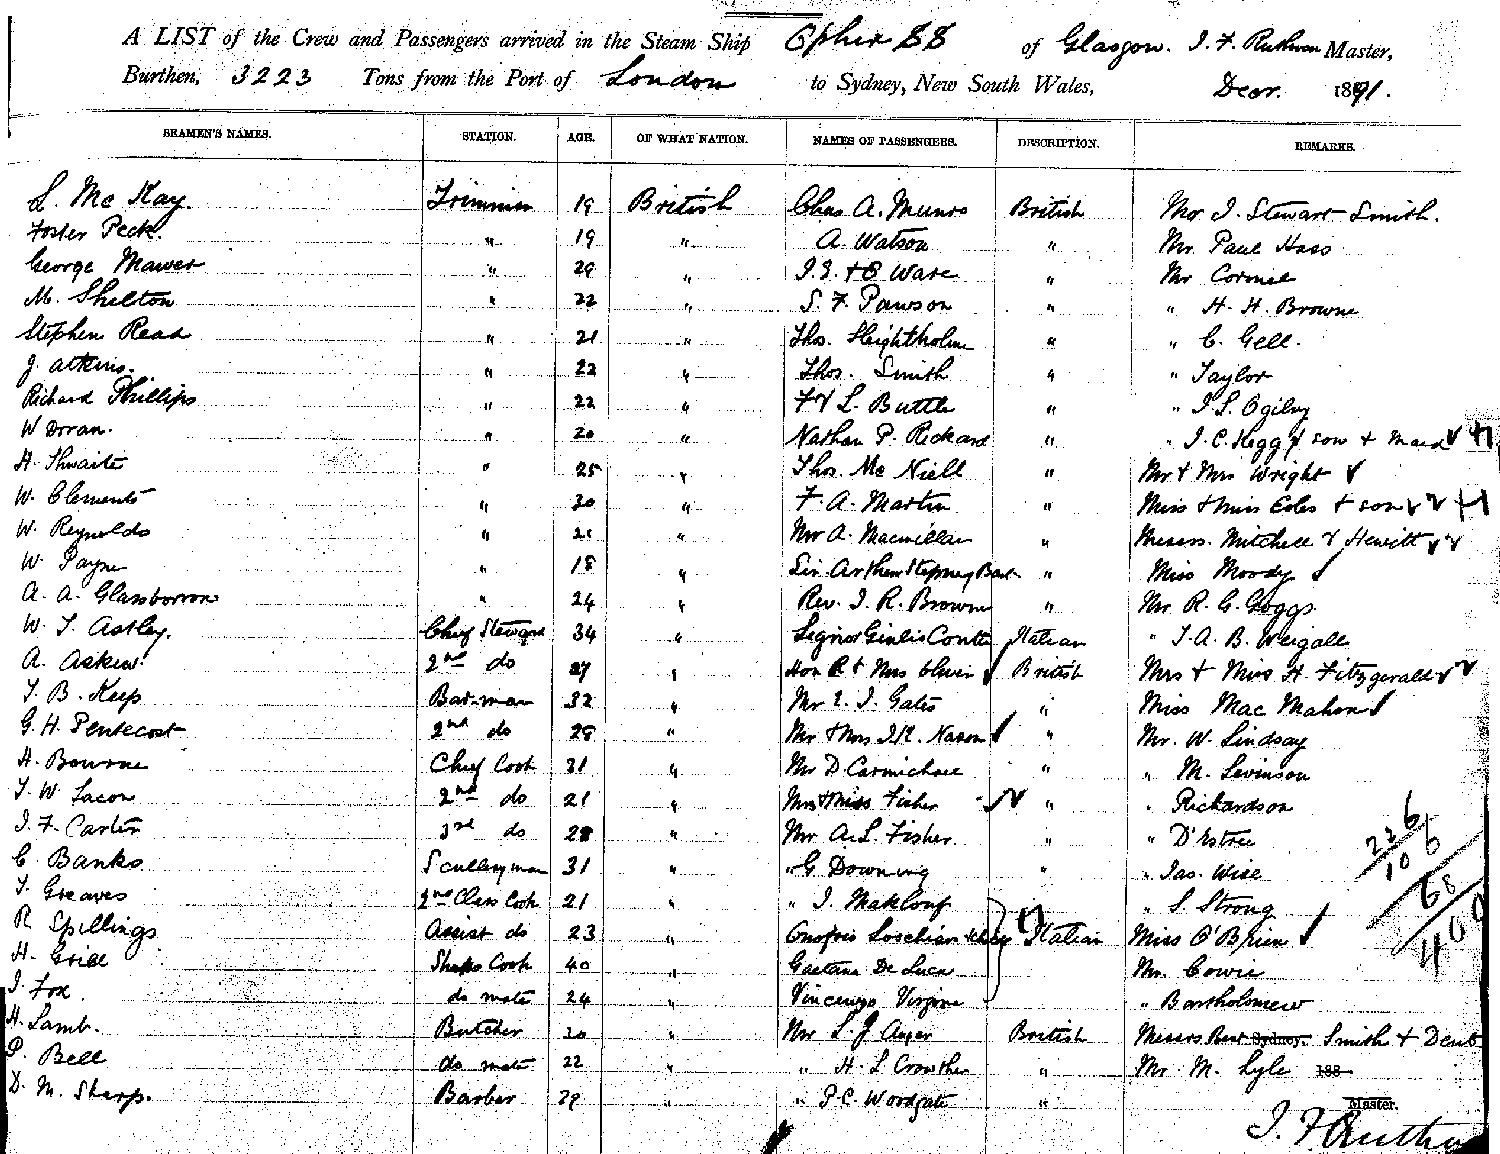 A LIST of the Crew and Passengers arrived in the Steam Ship Ophir SS of Glasgow. J. F. Ruthven Master,
Burthen, 3223 Tons from the Port of London to Sydney, New South Wales, Decr. 1891.
SEAMEN'S NAMES. STATION. AGE. OF WHAT NATION. NAMES OF PASSENGERS. DESCRIPTION. REMARKS.
L. Mc Kay. Trimmer 19 British Chas A. Munro British Mr J. Stewart Smith.
Foster Peck. " 19 " A. Watson " Mr Paul Hass
George Mawer " 29 " J. J. + C Ware " Mr Cormie
M. Shelton " 22 " S. F. Pawson " " H. H. Browne
Stephen Read " 21 " Thos. Sleightholme " " C. Gell.
J. Atkins. " 22 " Thos. Smith " " Taylor
Richard Phillips " 22 " F + L. Buttle " " J. S. Ogilvy
W Doran. " 20 " Nathan P. Rickard " " J. C. Hegg + son + Maid
H. Thwaite " 25 " Thos. Mc Niell " Mr + Mrs Wright
W. Clements " 30 " F. A. Martin " Miss + Miss Eales + son
W. Reynolds " 21 " Mr A. Macmillan " Messrs. Mitchell + Hewitt
W. Payne " 18 " Sir Arthur Stepney Bart " Miss Moody
A. A. Glassborrow " 24 " Rev. J. R. Browne " Mr R. G. Goggs
W. T. Astley. Chief Steward 34 " Signor Giulis Italian " T. A. B. Weigall
A. Askew. 2nd do 27 " Hon R + Mrs Oliver British Mrs + Miss H. Fitzgerald
T. B. Keep Bar-man 32 " Mr E. J. Gates " Miss Mac Mahon
G. H. Pentecost 2nd do 28 " Mr + Mrs J. R. Nason " Mr. W. Lindsay
H. Bourne Chief Cook 31 " Mr D Carmichael " " M. Levinson
T. W. Lacon 2nd do 21 " Mrs + Miss Fisher " " Richardson
J. F. Carter 3rd do 28 " Mr A. L. Fisher " " D'Estree
C. Banks. Sculleryman 31 " " G Downing " " Jas. Wise
T. Greaves 2nd Class Cook 21 " " J. Maklouf " S Strong
R Spillings Assist do 23 " Onofrio Italian Miss O'Brien
H. Grice Ships Cook 40 " Gaetano De Luca Mr. Cowie
J. Fox do mate 24 " Vincenzo " Bartholomew
H. Lamb. Butcher 30 " Mr S. J. Auger British Messrs Smith + Dent
P. Bell do mate 22 " " H. S Crowther " Mr. M. Lyle 188
D. M. Sharp. Barber 29 " P. C. Woodgate "
Master.
J. F. Ruthven
226
106
68
400